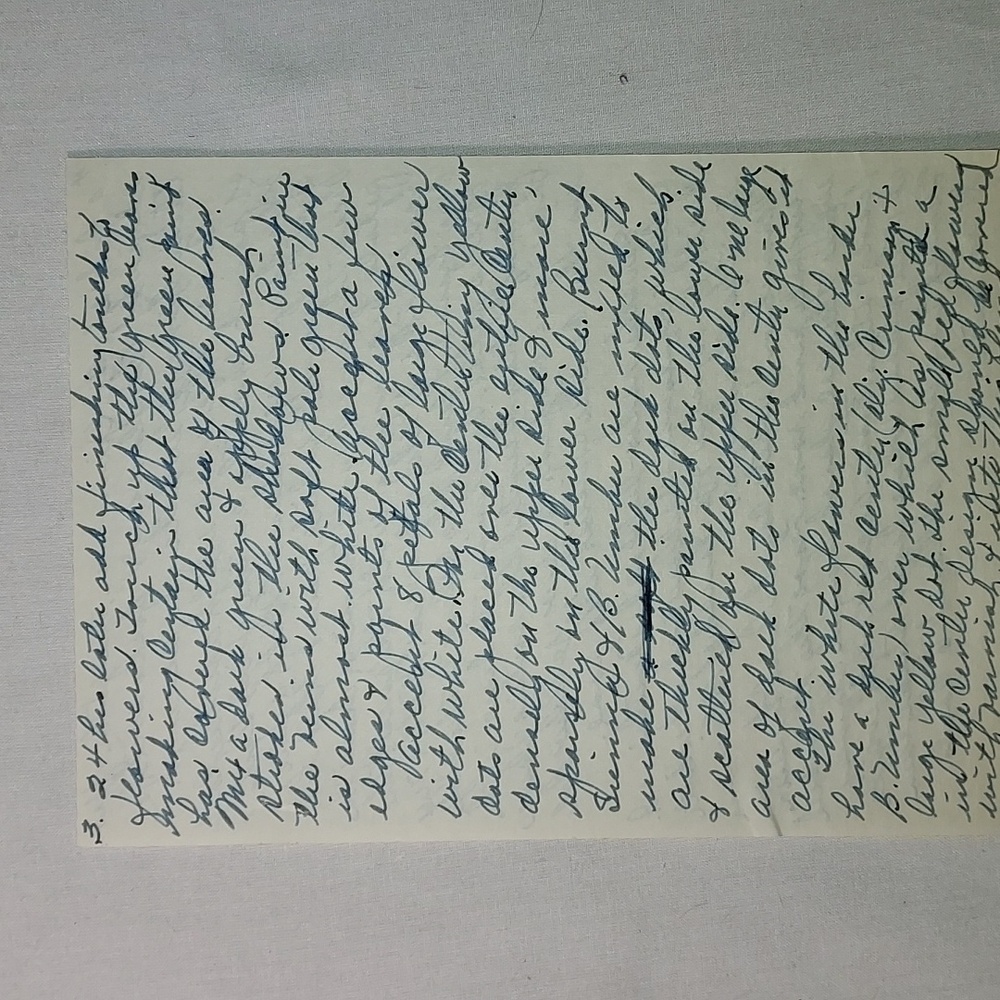 3. 24 hrs later add finishing touches to
flowers. Touch up the green leaves
making certain that the green paint
has covered the area of the leaves.
Mix a dark green & apply brush
strokes in the shadows. Paint in
the veins with soft pale green that
is almost white. Accept a few
edges & points of the leaves.
Accept 8 petals of large flower
with white. Dry the center tiny yellow
dots are placed over the entire center,
densely on the upper side & more
sparsely on the lower side. Burnt
Sienna & B. Umber are mixed to
make the dark dots, which
are thickly painted on the lower side
& scattered on the upper side. One large
area of dark dots in the center gives it
accent.
The white flowers in the border
have a dark red center (Aliz. Crimson +
B. Umber) over which is painted a
large yellow dot. the small red flowers
in the center design should be covered
with crimson & white